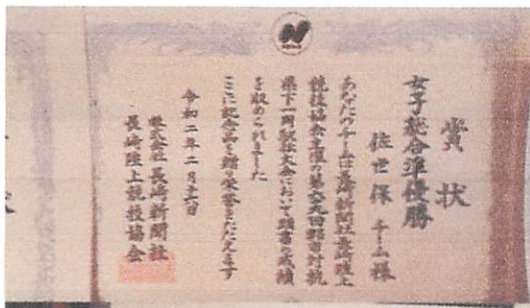 賞状
女子総合準優勝
佐世保チーム様
あなたのチームは長崎新聞社長崎陸上
競技協会主催の第六九回郡市対抗
県下一周駅伝大会において頭書の成績
を収められました
ここに記念品を贈り栄誉をたたえます
令和二年二月十六日
株式会社長崎新聞社
長崎陸上競技協会